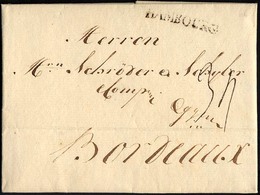 HAMBOURG
Herren
Schröder & Schyler
Comp
Bordeaux